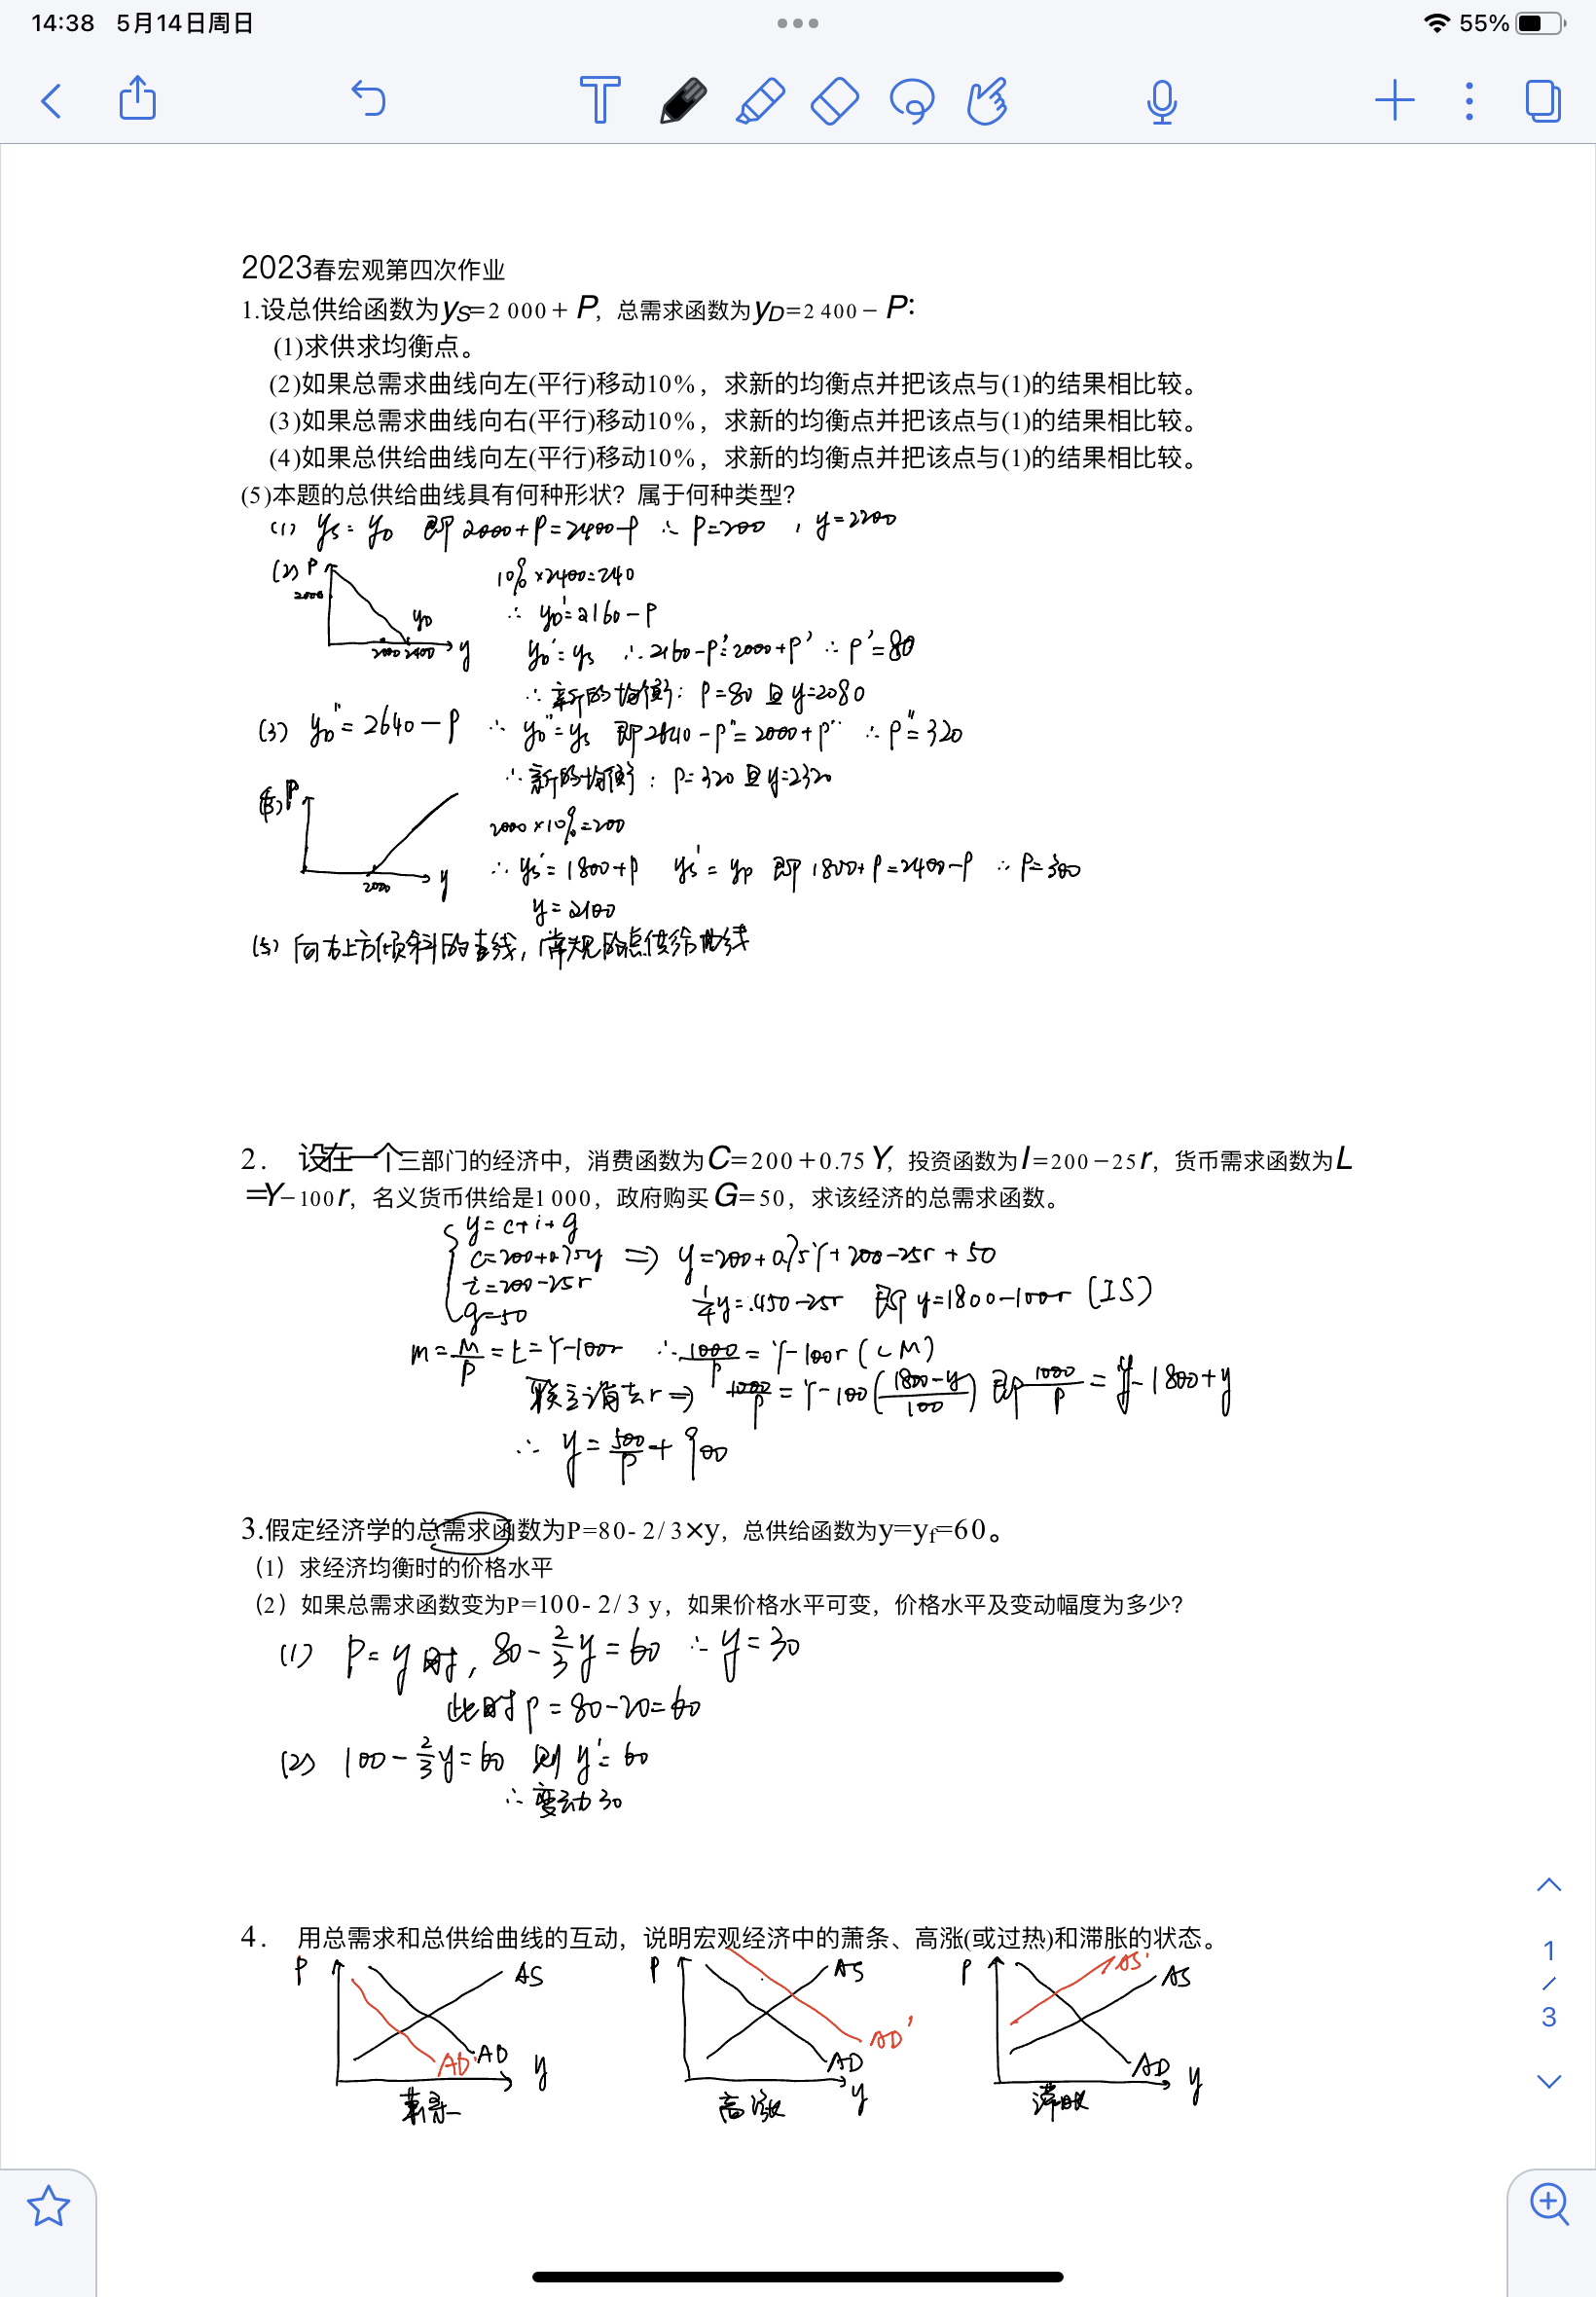 14:38 5月14日周日
55%
2023春宏观第四次作业
1.设总供给函数为yS=2 000+P，总需求函数为yD=2 400-P：
(1)求供求均衡点。
(2)如果总需求曲线向左(平行)移动10%，求新的均衡点并把该点与(1)的结果相比较。
(3)如果总需求曲线向右(平行)移动10%，求新的均衡点并把该点与(1)的结果相比较。
(4)如果总供给曲线向左(平行)移动10%，求新的均衡点并把该点与(1)的结果相比较。
(5)本题的总供给曲线具有何种形状？属于何种类型？
(1) ys=yD 即2000+P=2400-P ∴P=200，y=2200
(2) P 10%×2400=240
2000
yD ∴ yD'=2160-P
2000 2400 y yD'=ys ∴2160-P'=2000+P' ∴P'=80
∴新的均衡：P=80且y=2080
(3) yD''=2640-P ∴ yD''=ys 即2640-P''=2000+P'' ∴P''=320
∴新的均衡：P=320且y=2320
P
2000×10%=200
2000 y ∴ys'=1800+P ys'=yD 即1800+P=2400-P ∴P=300
y=2100
(5) 向右上方倾斜的直线，常规的总供给曲线
2. 设在一个三部门的经济中，消费函数为C=200+0.75Y，投资函数为I=200-25r，货币需求函数为L
=Y-100r，名义货币供给是1 000，政府购买G=50，求该经济的总需求函数。
y=c+i+g
c=200+0.75y ⇒ y=200+0.75Y+200-25r+50
i=200-25r
g=50 1/4y=450-25r 即y=1800-100r (IS)
m=M/P=L=Y-100r ∴1000/P=Y-100r (LM)
联立消去r⇒ 1000/P=Y-100(1800-y/100) 即1000/P=y-1800+y
∴ y=500/P+900
3.假定经济学的总需求函数为P=80-2/3×y，总供给函数为y=yf=60。
（1）求经济均衡时的价格水平
（2）如果总需求函数变为P=100-2/3 y，如果价格水平可变，价格水平及变动幅度为多少？
(1) P=y时，80-2/3y=60 ∴y=30
此时P=80-20=60
(2) 100-2/3y=60 则y'=60
∴变动30
4. 用总需求和总供给曲线的互动，说明宏观经济中的萧条、高涨(或过热)和滞胀的状态。
P AS AD' AD y
萧条
P AS AD' AD y
高涨
P AS' AS AD y
滞胀
1
/
3